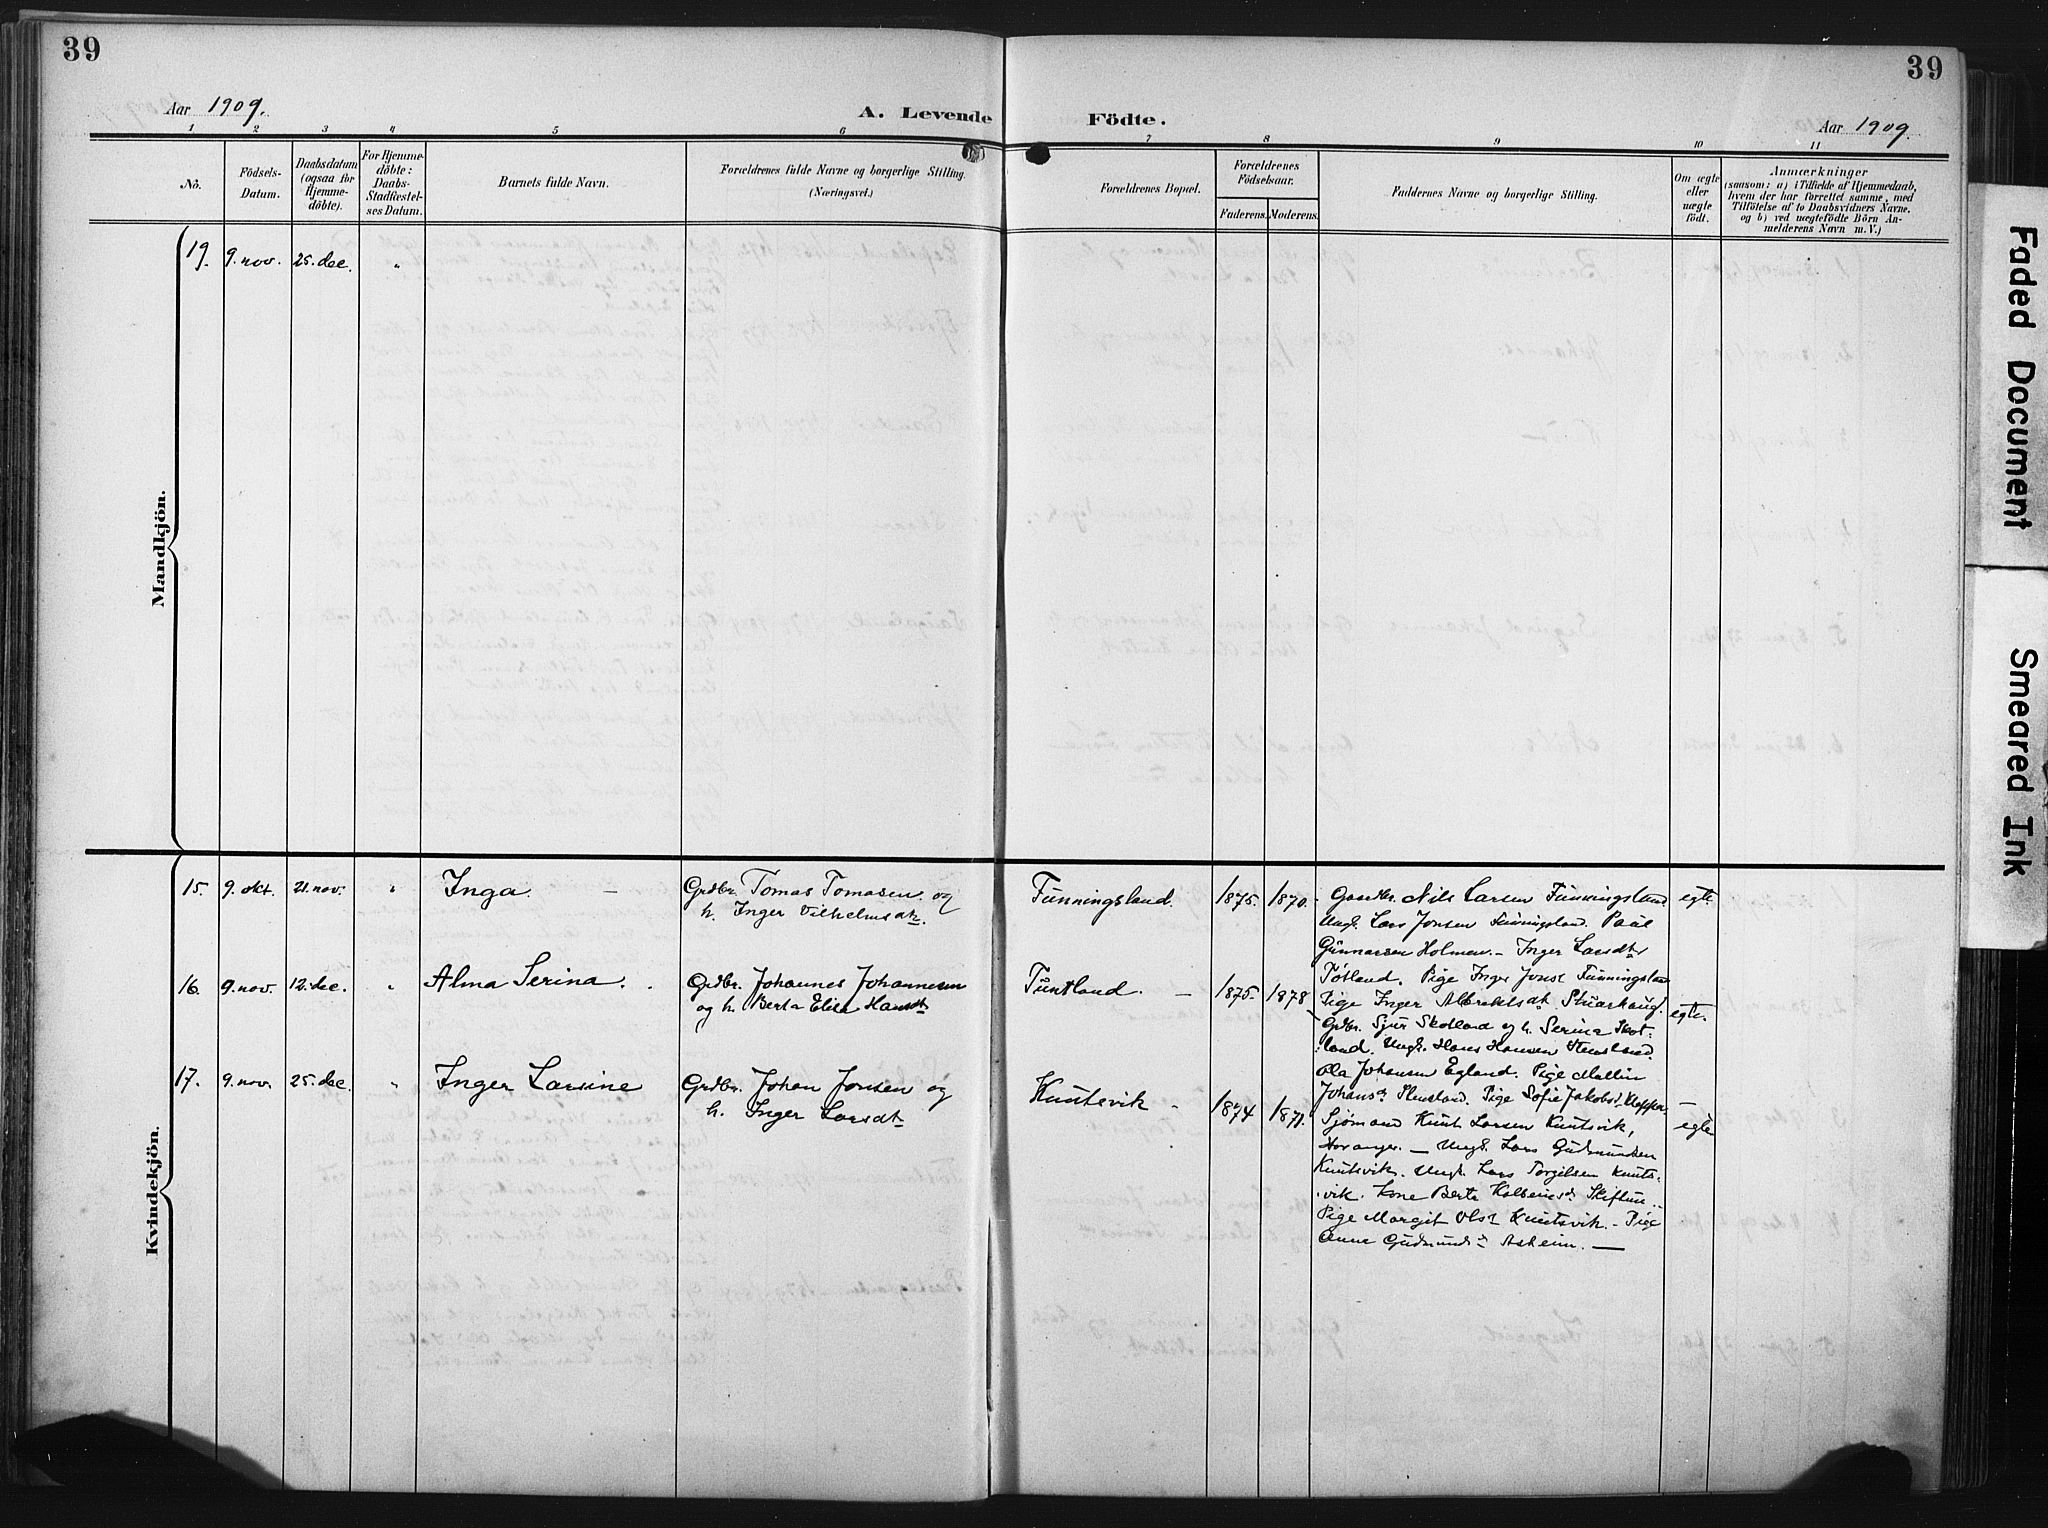 39
39
Aar 1909.
A. Levende Födte.
Aar 1909.
1 2 3 4 5 6 7 8 9 10 11
No.
Födsels-Datum.
Daabsdatum (ogsaa for Hjemme-döbte).
For Hjemme-döbte: Daabs-Stadfæstel-ses Datum.
Barnets fulde Navn.
Forældrenes fulde Navne og borgerlige Stilling.
(Næringsvei.)
Forældrenes Bopæl.
Forældrenes Födselsaar.
Faderens. Moderens.
Faddernes Navne og borgerlige Stilling.
Om ægte eller uægte født.
Anmærkninger
(saasom: a) i Tilfælde af Hjemmedaab,
hvem der har forrettet samme, med
Tilföielse af to Daabsvidners Navne,
og b) ved uægtefödte Börn An-
melderens Navn m. V.)
Mandkjön.
19. 9. nov. 25. dec. "
Kvindekjön.
15. 9. okt. 21. nov. " Inga. —
Grdbr. Tomas Tomasen og
h. Inger Vilhelmsdtr.
Tunningsland. 1875. 1870.
Gaardbr. Nils Larsen Tunningsland
Ungk. Lars Jonsen Tunningsland. Paul
Gunnarsen Holmen. - Inger Larsdtr
Tøtland. Pige Inger Jonsd. Tunningsland
Pige Inger
egte.
16. 9. nov. 12. dec. " Alma Serina.
Grdbr. Johannes Johannesen
og h. Berta Elisa Hansdt
Tuntland. — 1875. 1878
Grdbr. Sjur Skotland og h. Serina Skot-
land. Ungk. Hans Hansen
Ola Johansen Egland. Pige Mallin
Pige Sofie Jakobsd.
egte.
17. 9. nov. 25. dec. " Inger Larsine
Grdbr. Johan Jonsen og
h. Inger Larsdt
Knutsvik - 1874 1871.
Sjømand Knut Larsen Knutsvik,
— Ungk. Lars Gudmundsen
Knutsvik. Ungk. Lars Torgilsen Knuts-
vik. Kone Berta Skiftun.
Pige Margit Olsd. Knutsvik. - Pige
Anne Gudmundsd. Askeim. —
egte
Faded Document
Smeared Ink